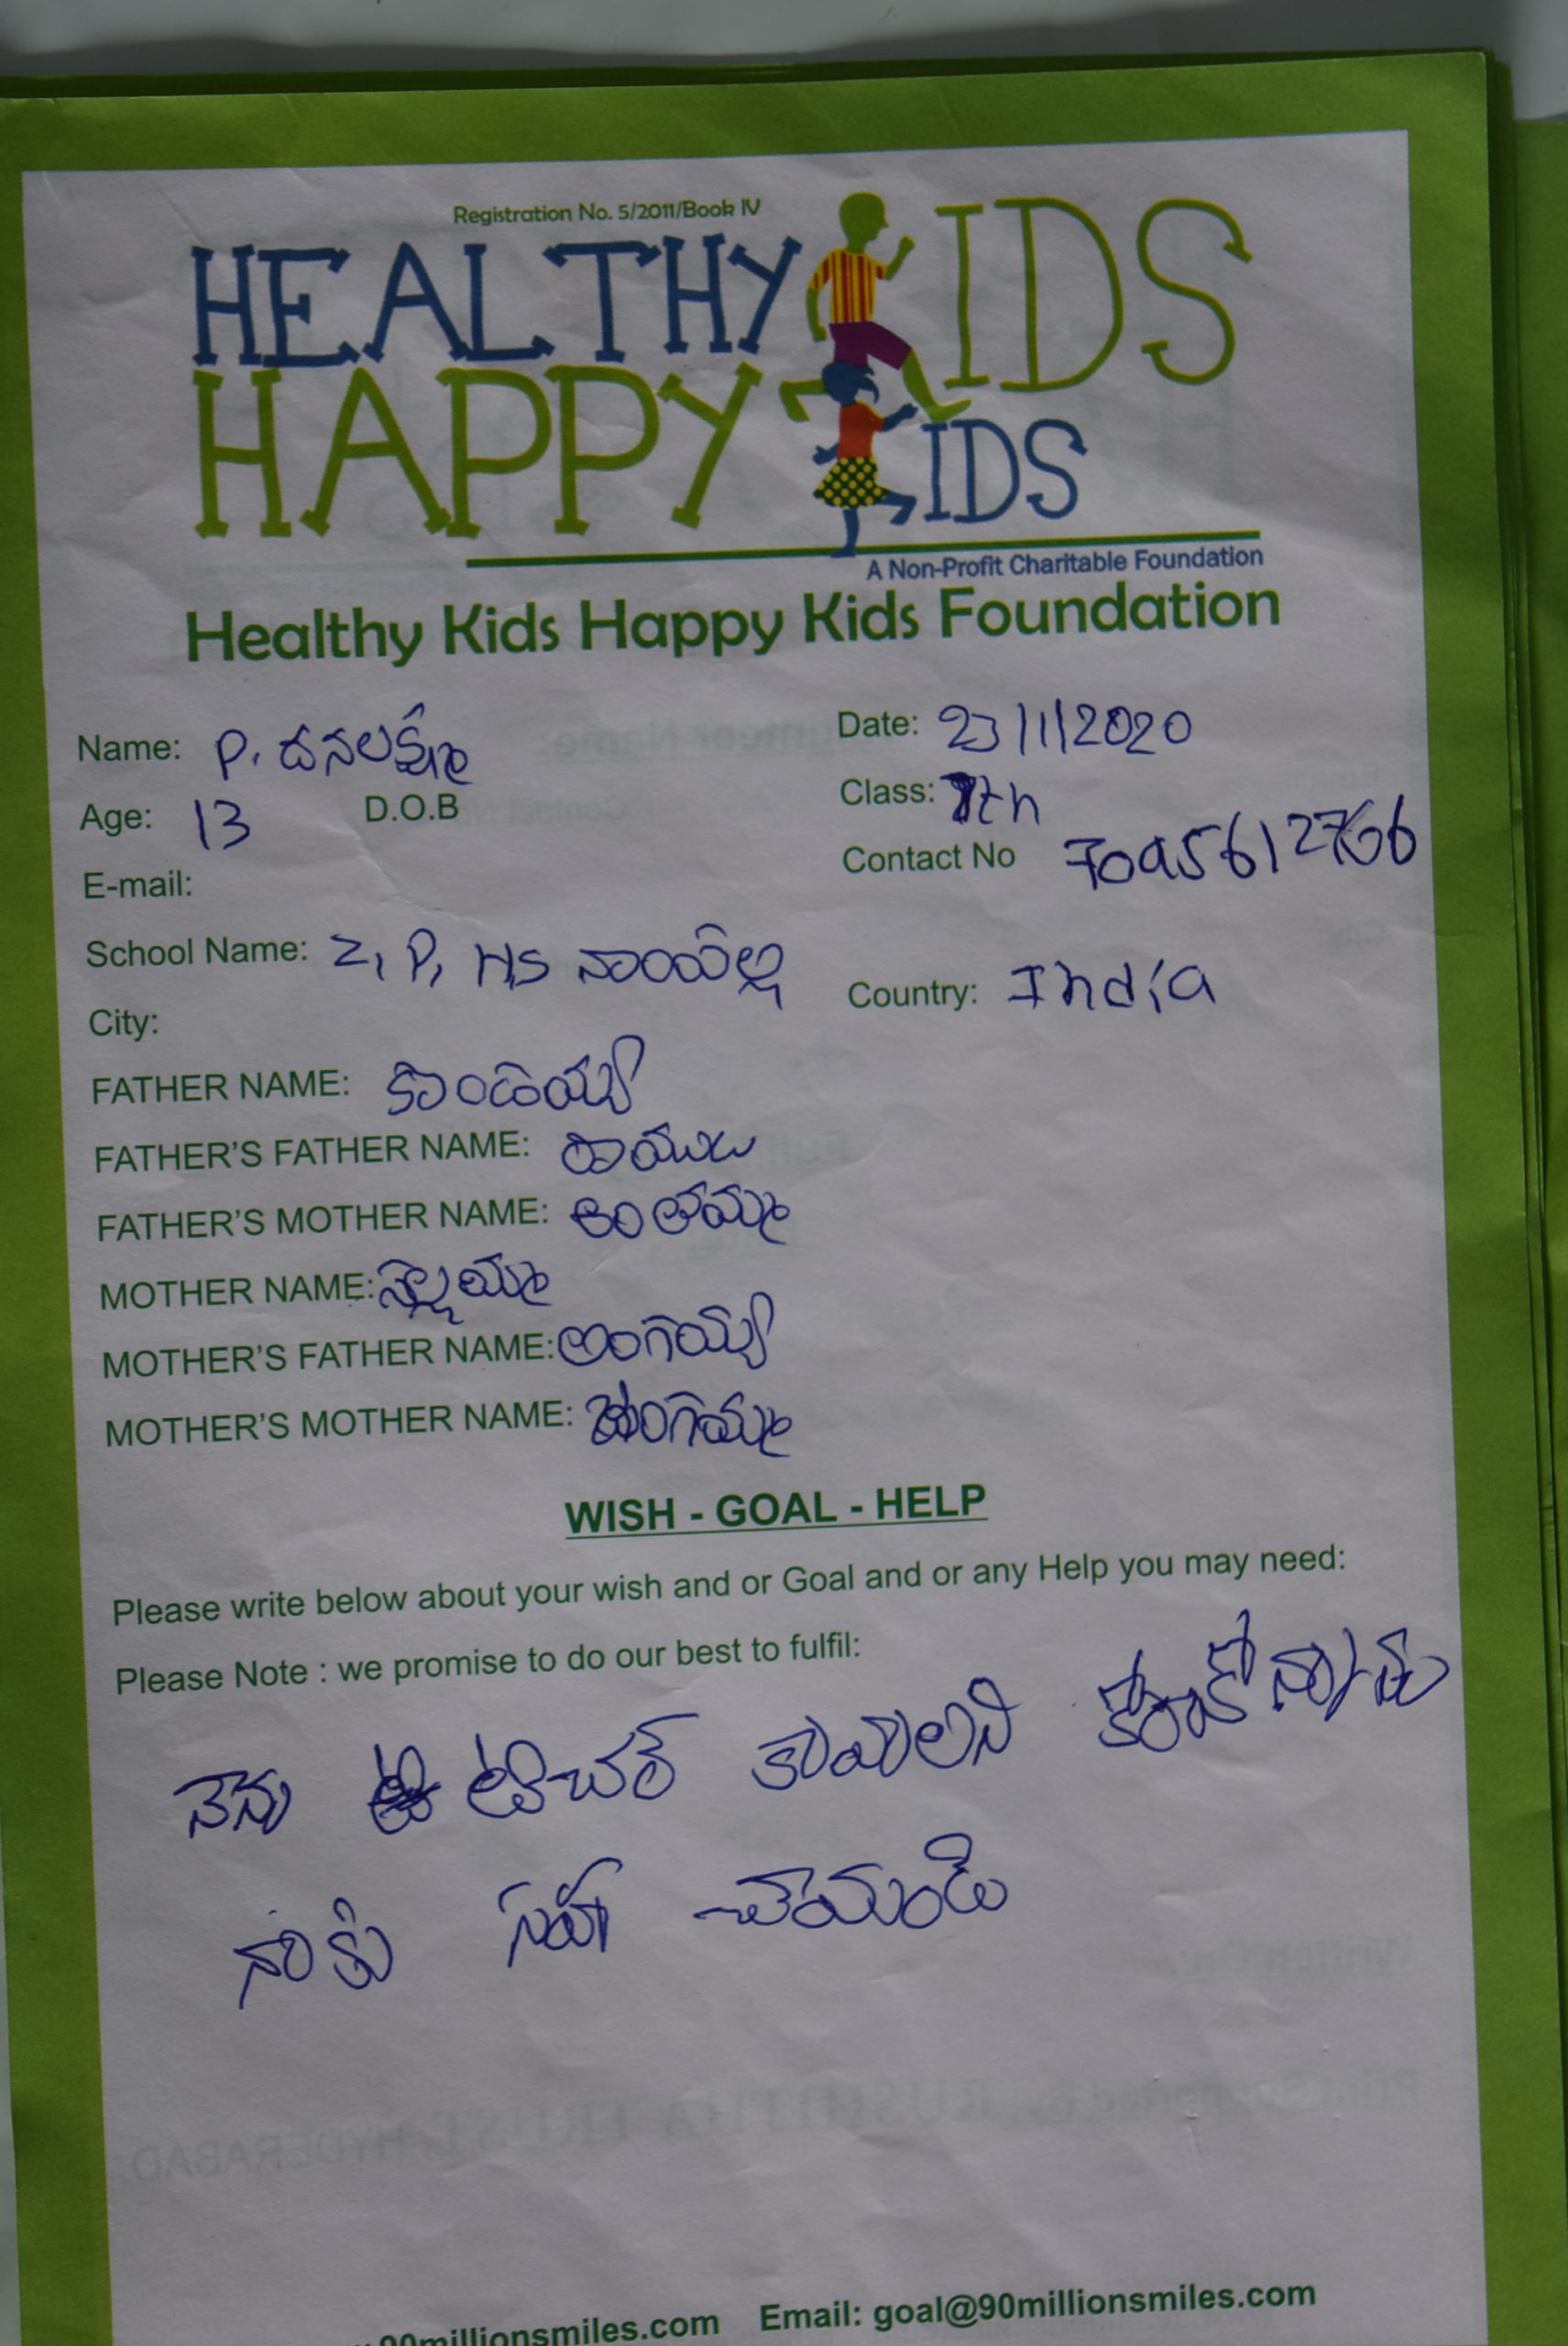 Registration No. 5/2011/Book IV
HEALTHY KIDS
HAPPY KIDS
A Non-Profit Charitable Foundation
Healthy Kids Happy Kids Foundation
Name: P. దనలక్ష్మి Date: 23/1/2020
Age: 13 D.O.B Class: 7th
E-mail: Contact No
School Name: Z, P, HS
City: Country: India
FATHER NAME: కొండయ్య
FATHER'S FATHER NAME: రాములు
FATHER'S MOTHER NAME:
MOTHER NAME:
MOTHER'S FATHER NAME:
MOTHER'S MOTHER NAME:
WISH - GOAL - HELP
Please write below about your wish and or Goal and or any Help you may need:
Please Note : we promise to do our best to fulfil:
నేను టీచర్ కావాలని
నాకు సహ చేయండి
90millionsmiles.com Email: goal@90millionsmiles.com